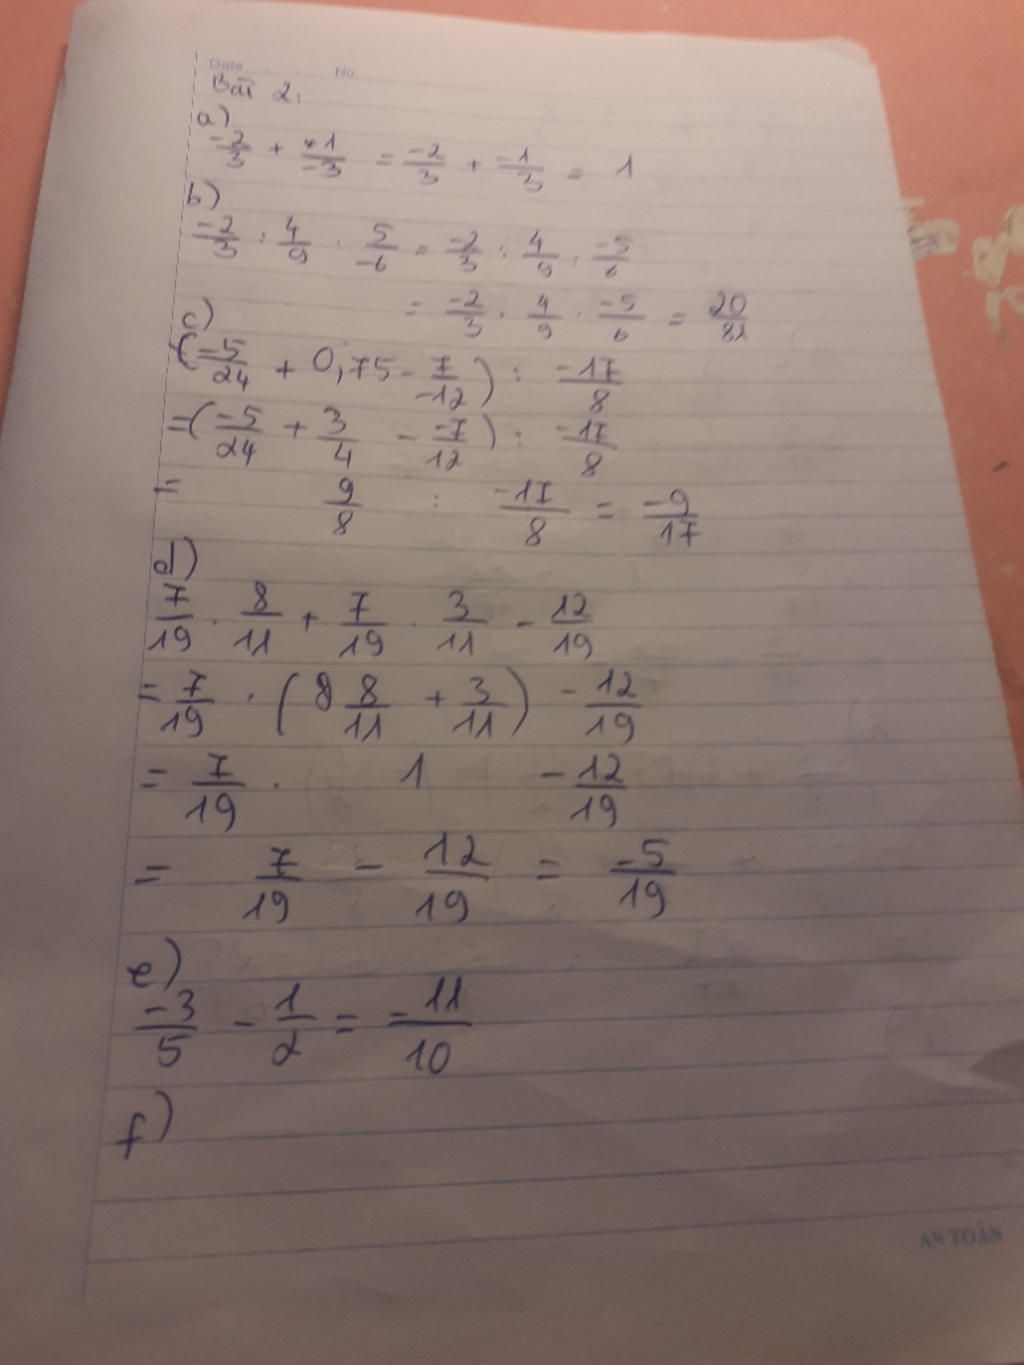 Date No.
Bài 2:
a)
-2/3 + 1/-3 = -2/3 + -1/3 = 1
b)
-2/3 : 4/9 . 5/-6 = -2/3 : 4/9 . -5/6
= -2/3 . 4/9 . -5/6 = 20/81
c)
(-5/24 + 0,75 - 7/-12) : -17/8
=(-5/24 + 3/4 - -7/12) : -17/8
= 9/8 : -17/8 = -9/17
d)
7/19 . 8/11 + 7/19 . 3/11 - 12/19
= 7/19 . (8 8/11 + 3/11) - 12/19
= 7/19 . 1 - 12/19
= 7/19 - 12/19 = -5/19
e)
-3/5 - 1/2 = -11/10
f)
AN TOÀN